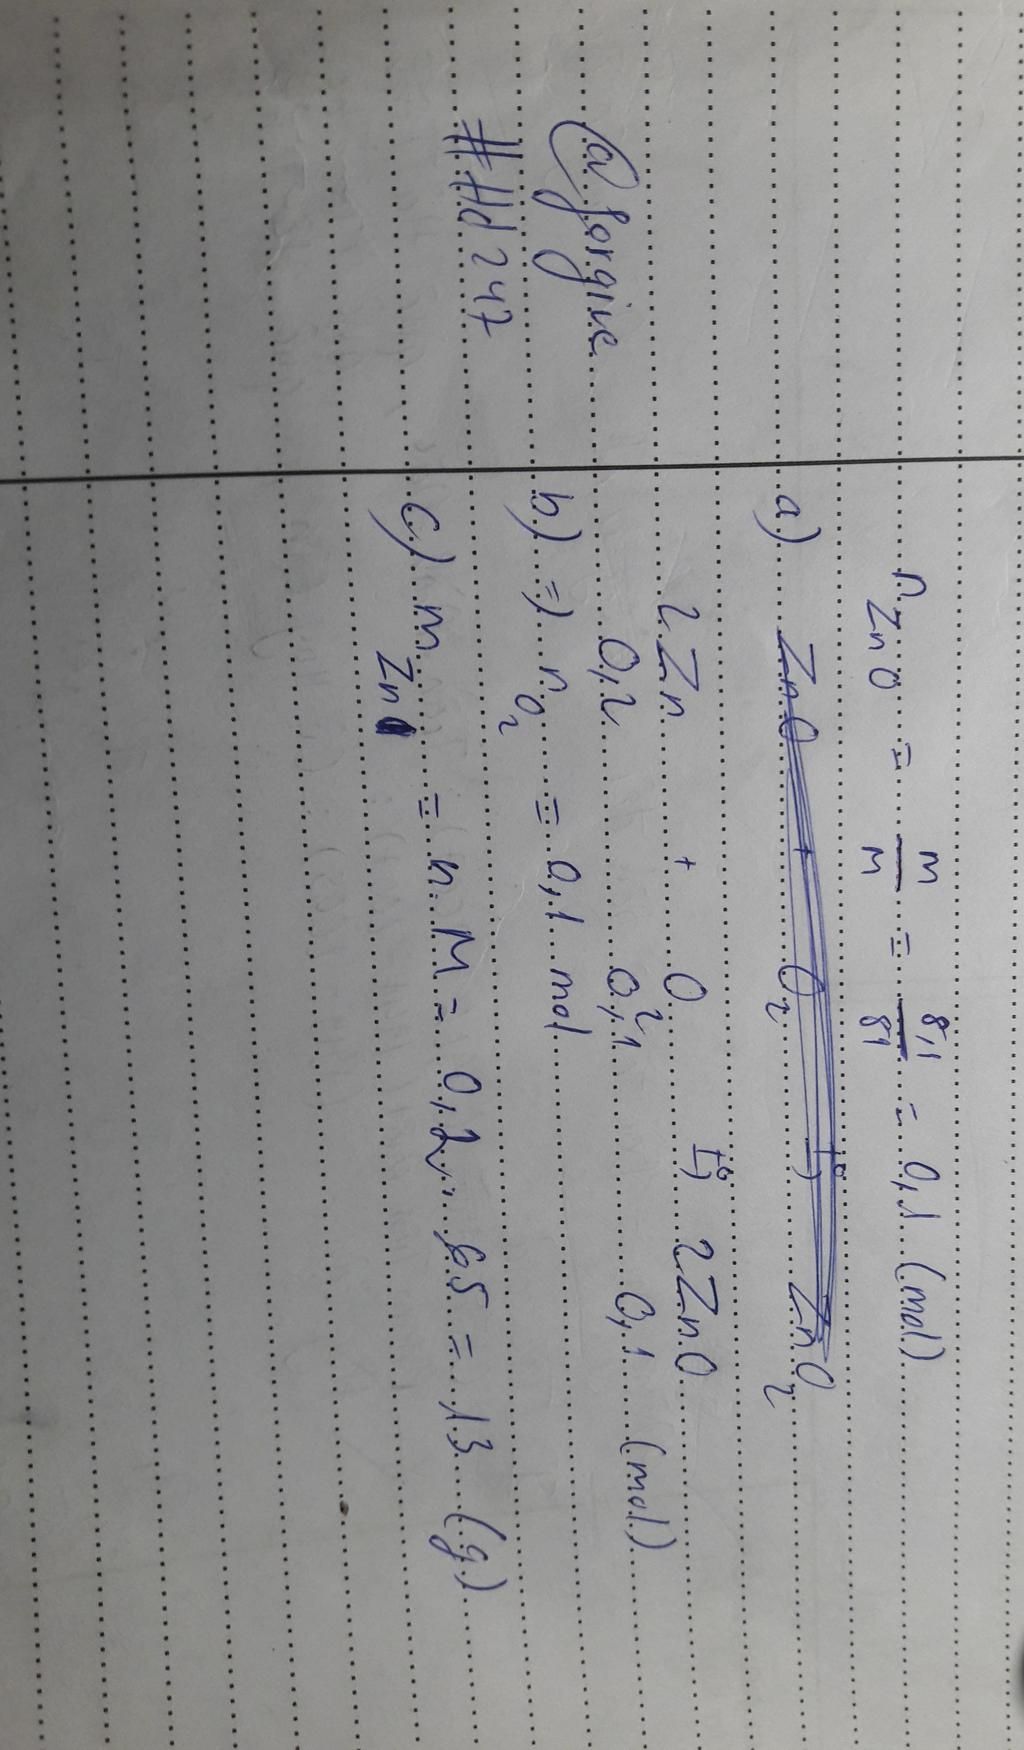 n ZnO = m/M = 8,1/81 = 0,1 (mol)
a) ZnO + O2 t°→ ZnO2
2Zn + O2 t°→ 2ZnO
0,2 0,1 0,1 (mol)
b) => nO2 = 0,1 mol
c) m Zn = n. M = 0,2. 65 = 13 (g)
@forgive
#Hd247